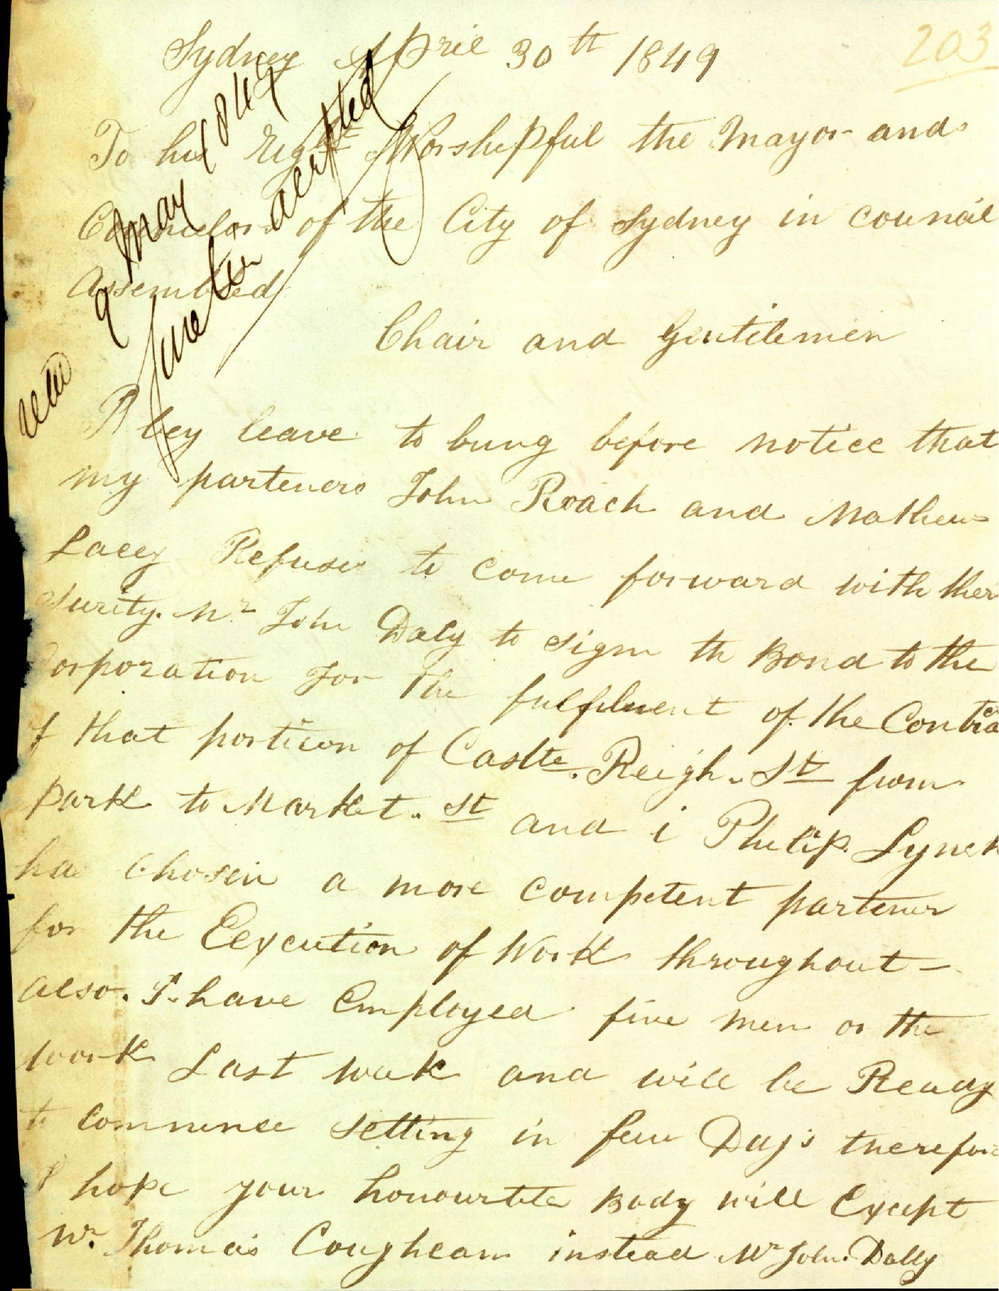 203
Sydney April 30th 1849
To his Right Worshipful the Mayor and
Councelors of the City of Sydney in council
Assembled
Chair and Gentilemen
I bey leave to bung before notice that
my parteners John Roach and Mathew
Lacey Refuses to come forward with ther
surity. Mr John Daly to sign th Bond to the
Corporation For the fulfilment of the Contra
of that portion of Castle. Reigh. St from
park to Market. St and i Philip Lynch
has chosen a more competent partener
for the Eexcution of Work throughout—
also. I have Employed five men on the
work Last week and will be Ready
to commence setting in few Days therefore
I hope your honourable Body will Except
Mr. Thomas Coughlan instead Mr John. Dally
9 May 1849
Sureties accepted